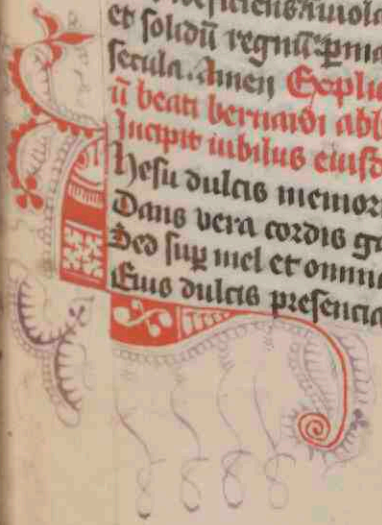 et solidū regnū
secula. Amen Expli
ū beati bernardi abb
Incipit iubilus eiusd
Ihesu dulcis memor
Dans vera cordis ga
Sed suꝑ mel et omni
Eius dulcis presencia